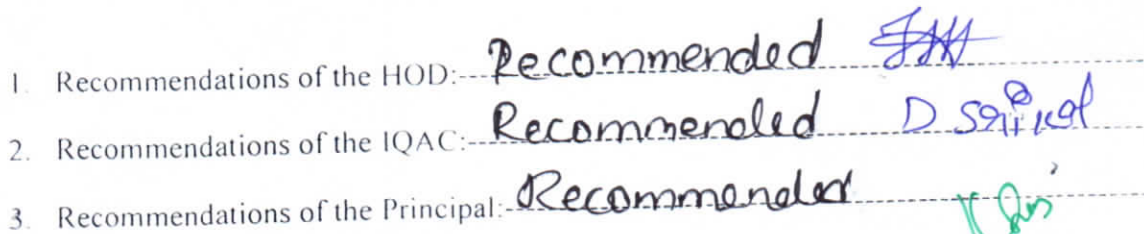 1. Recommendations of the HOD:---Recommended
2. Recommendations of the IQAC:---Recommended D
3. Recommendations of the Principal:-Recommended